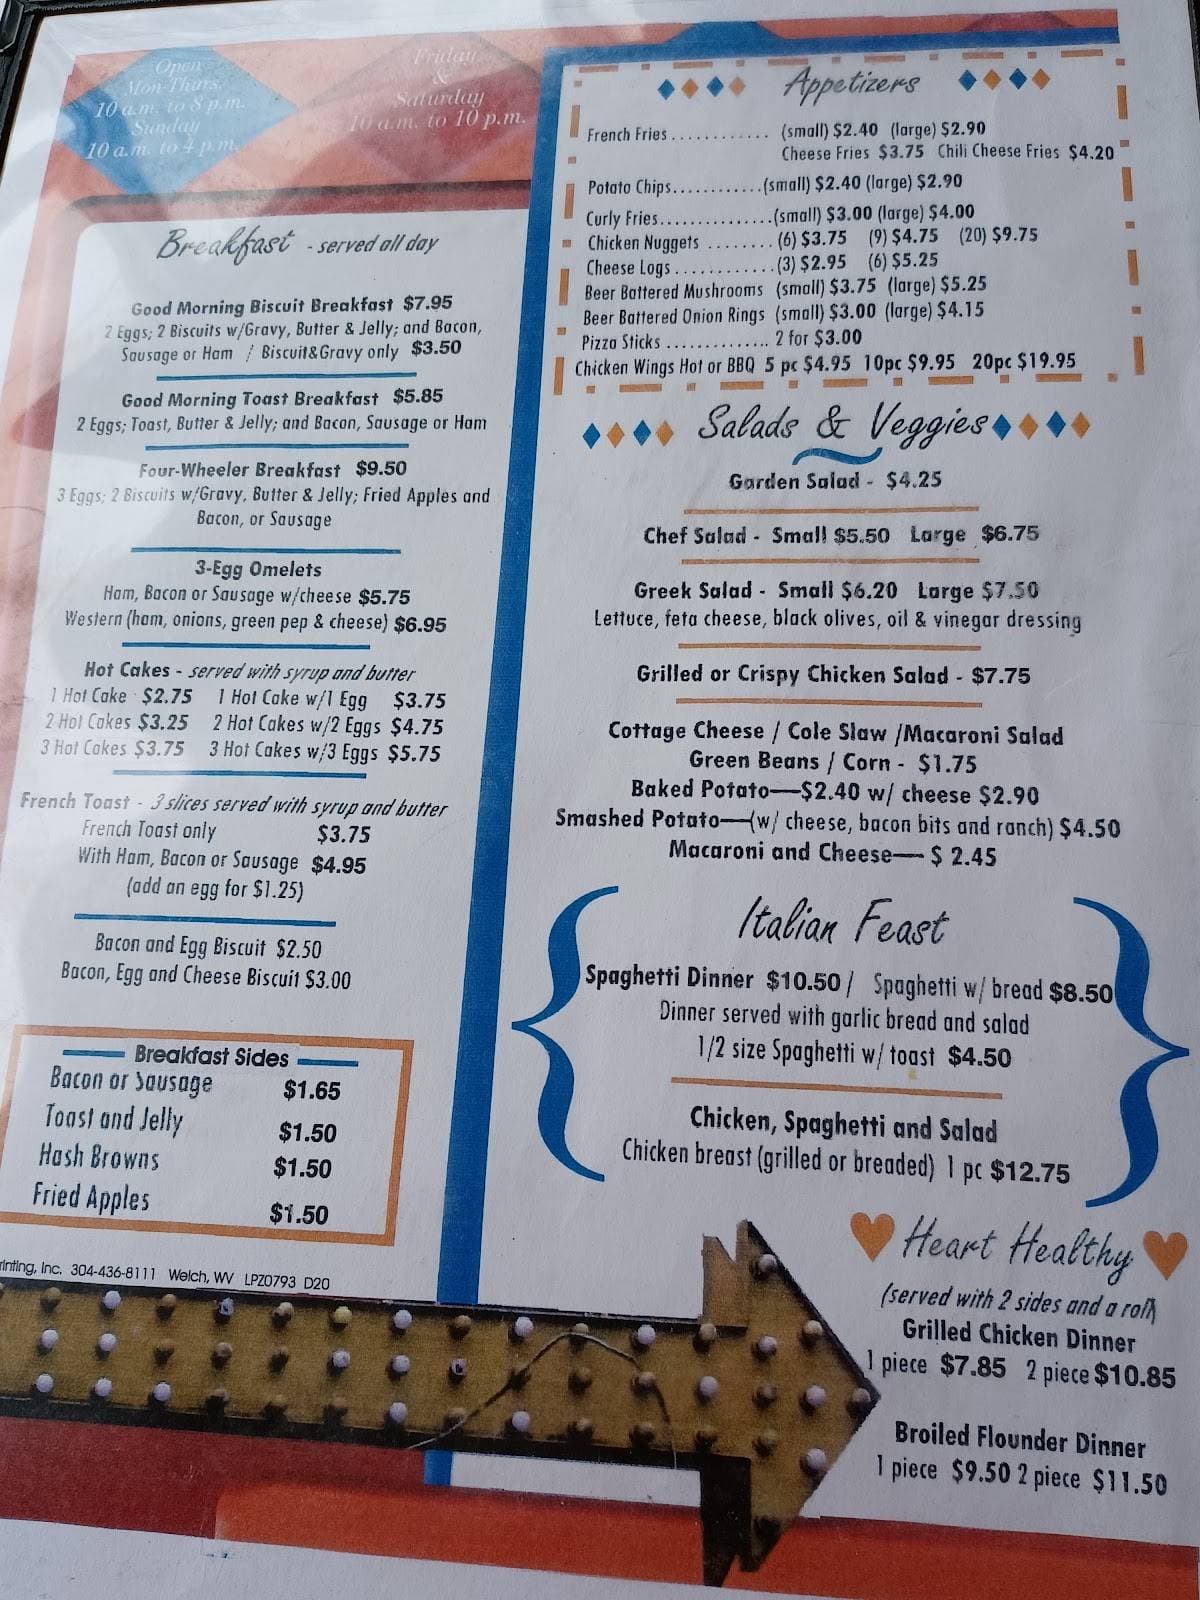 Open
Mon-Thurs.
10 a.m. to 8 p.m.
Sunday
10 a.m. to 4 p.m.
Friday
&
Saturday
10 a.m. to 10 p.m.
Breakfast - served all day
Good Morning Biscuit Breakfast $7.95
2 Eggs; 2 Biscuits w/Gravy, Butter & Jelly; and Bacon,
Sausage or Ham / Biscuit&Gravy only $3.50
Good Morning Toast Breakfast $5.85
2 Eggs; Toast, Butter & Jelly; and Bacon, Sausage or Ham
Four-Wheeler Breakfast $9.50
3 Eggs; 2 Biscuits w/Gravy, Butter & Jelly; Fried Apples and
Bacon, or Sausage
3-Egg Omelets
Ham, Bacon or Sausage w/cheese $5.75
Western (ham, onions, green pep & cheese) $6.95
Hot Cakes - served with syrup and butter
1 Hot Cake $2.75 1 Hot Cake w/1 Egg $3.75
2 Hot Cakes $3.25 2 Hot Cakes w/2 Eggs $4.75
3 Hot Cakes $3.75 3 Hot Cakes w/3 Eggs $5.75
French Toast - 3 slices served with syrup and butter
French Toast only $3.75
With Ham, Bacon or Sausage $4.95
(add an egg for $1.25)
Bacon and Egg Biscuit $2.50
Bacon, Egg and Cheese Biscuit $3.00
Breakfast Sides
Bacon or Sausage $1.65
Toast and Jelly $1.50
Hash Browns $1.50
Fried Apples $1.50
rinting, Inc. 304-436-8111 Welch, WV LPZ0793 D20
Appetizers
French Fries ............ (small) $2.40 (large) $2.90
Cheese Fries $3.75 Chili Cheese Fries $4.20
Potato Chips............(small) $2.40 (large) $2.90
Curly Fries...............(small) $3.00 (large) $4.00
Chicken Nuggets ........ (6) $3.75 (9) $4.75 (20) $9.75
Cheese Logs ............(3) $2.95 (6) $5.25
Beer Battered Mushrooms (small) $3.75 (large) $5.25
Beer Battered Onion Rings (small) $3.00 (large) $4.15
Pizza Sticks .............. 2 for $3.00
Chicken Wings Hot or BBQ 5 pc $4.95 10pc $9.95 20pc $19.95
Salads & Veggies
Garden Salad - $4.25
Chef Salad - Small $5.50 Large $6.75
Greek Salad - Small $6.20 Large $7.50
Lettuce, feta cheese, black olives, oil & vinegar dressing
Grilled or Crispy Chicken Salad - $7.75
Cottage Cheese / Cole Slaw /Macaroni Salad
Green Beans / Corn - $1.75
Baked Potato—$2.40 w/ cheese $2.90
Smashed Potato—(w/ cheese, bacon bits and ranch) $4.50
Macaroni and Cheese— $ 2.45
Italian Feast
Spaghetti Dinner $10.50 / Spaghetti w/ bread $8.50
Dinner served with garlic bread and salad
1/2 size Spaghetti w/ toast $4.50
Chicken, Spaghetti and Salad
Chicken breast (grilled or breaded) 1 pc $12.75
Heart Healthy
(served with 2 sides and a roll)
Grilled Chicken Dinner
1 piece $7.85 2 piece $10.85
Broiled Flounder Dinner
1 piece $9.50 2 piece $11.50